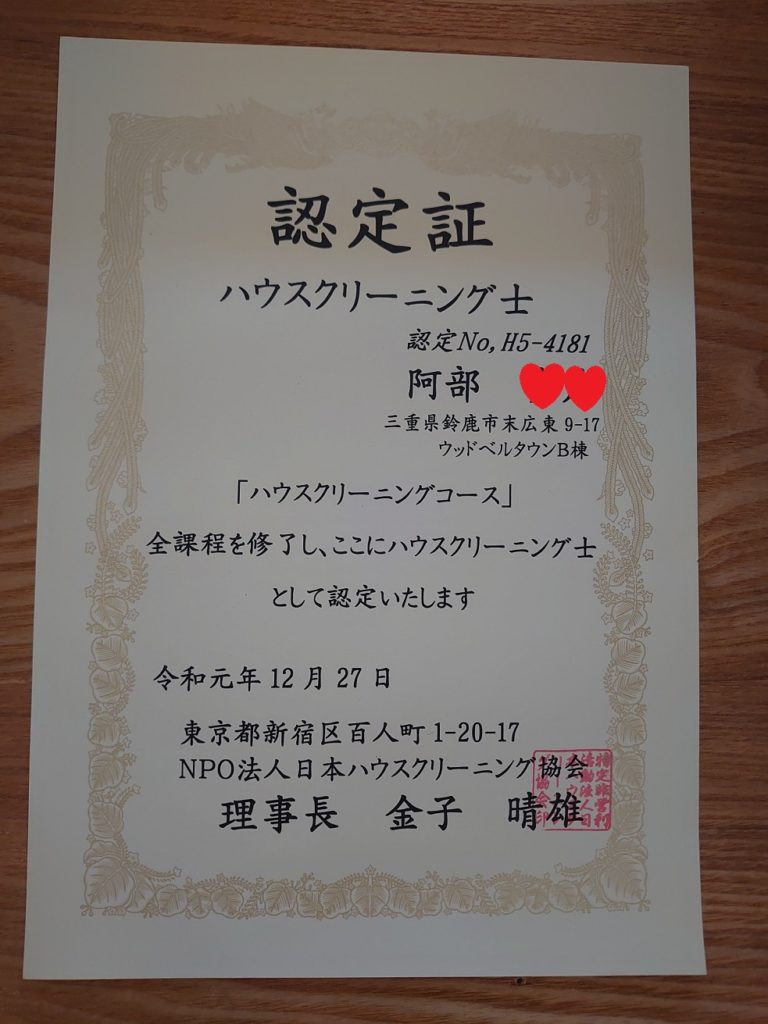 認定証
ハウスクリーニング士
認定No,H5-4181
阿部
三重県鈴鹿市末広東 9-17
ウッドベルタウンB棟
「ハウスクリーニングコース」
全課程を修了し、ここにハウスクリーニング士
として認定いたします
令和元年 12 月 27 日
東京都新宿区百人町 1-20-17
NPO法人日本ハウスクリーニング協会
理事長 金子 晴雄